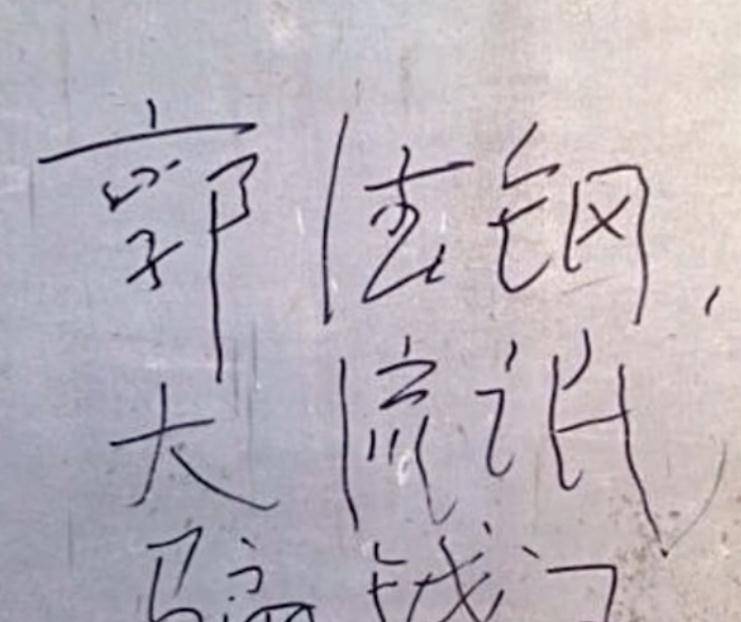 郭法钢,
大流氓
骗钱